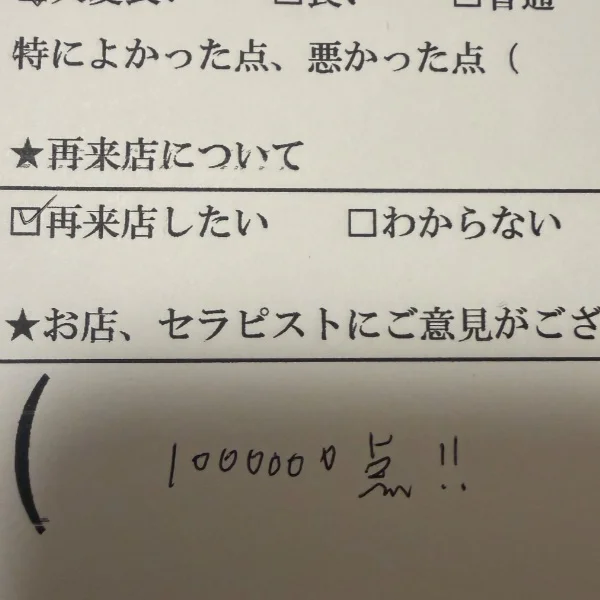 特によかった点、悪かった点（
★再来店について
☑再来店したい □わからない
★お店、セラピストにご意見がござ
( 1000000点!!